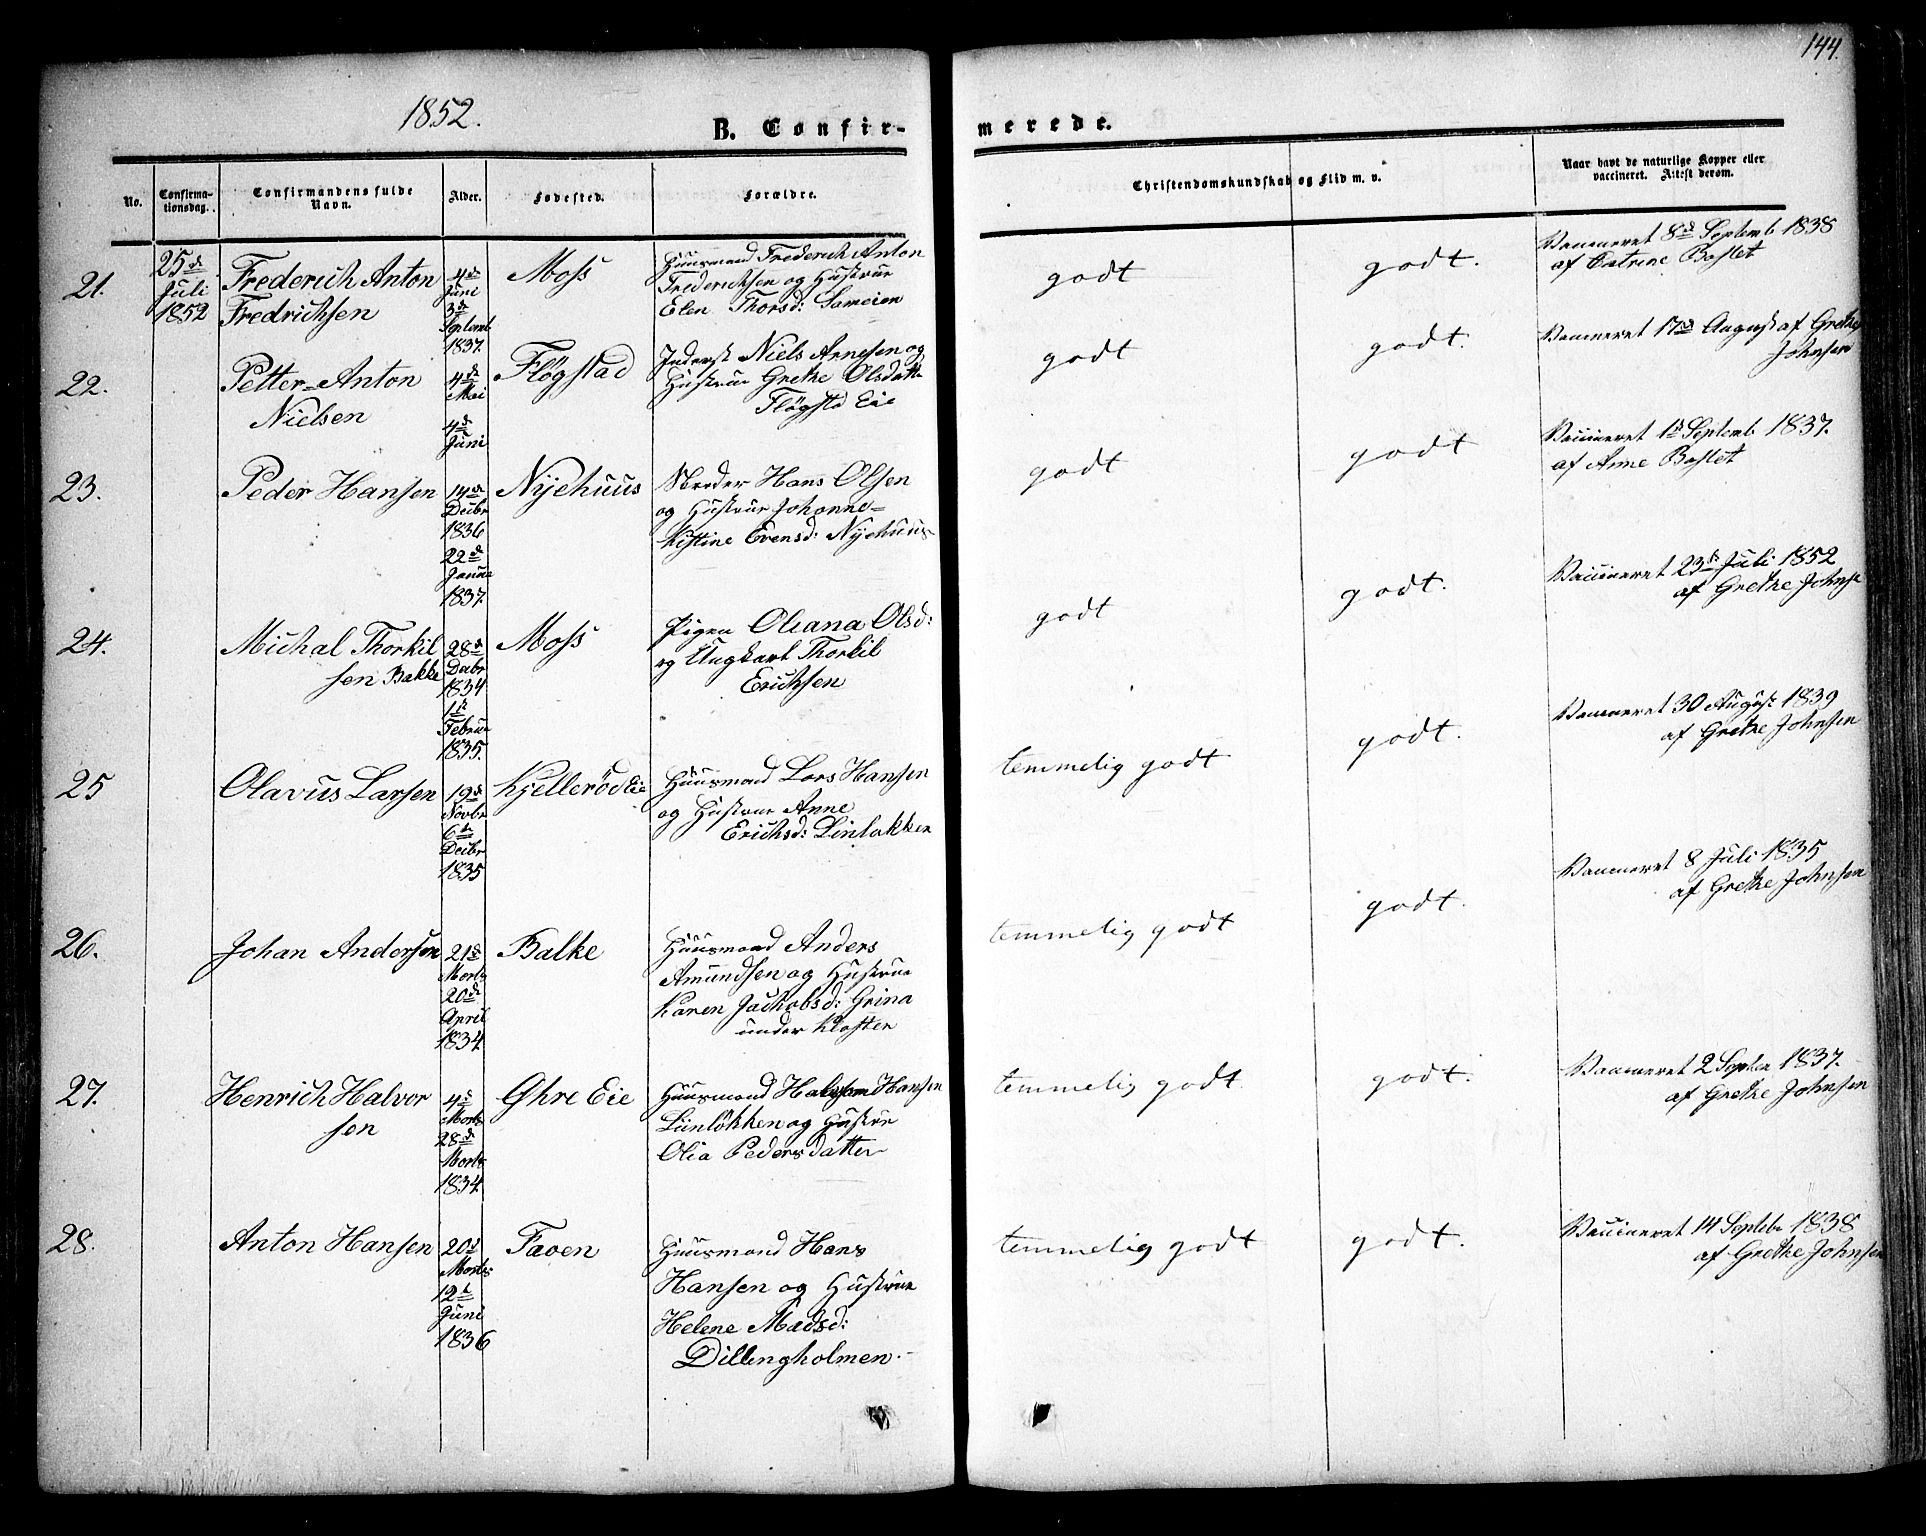 144.
1852.
B. Confir-
merede.
No.
Confirma-
tionsdag.
Confirmandens fulde
Navn.
Alder.
Fødested.
Forældre.
Christendomskundskab og Flid m. v.
Naar havt de naturlige Kopper eller
vaccineret. Attest derom.
21.
25de
Juli
1852
Frederich Anton
Fredrichsen
4de
Juni
3de
Septemb
1837.
Moss
Huusmand Frederich Anton
Frederichsen og Hustrue
Elen Thorsd:
godt
godt.
Vaccineret 8de Septemb 1838
af Catrine Baslet
22.
Petter-Anton
Nielsen
4de
Mai
4de
Juni
Fløgstad
Niels Arnesen og
Hustrue Grethe Olsdatt
Fløgstd Eie
godt
godt.
Vaccineret 17de August af Grethe
Johnsen
23.
Peder Hansen
14de
Decbr
1836
22de
Janua
1837.
Nyehuus
Hans Olsen
og Hustrue Johanne-
Kistine Evensd: Nyehuus
godt
godt
Vaccineret 1ste Septemb 1837.
af Anne Baslet
24.
Michal Thorkil
sen Bakke
28de
Decbr
1834
1ste
Februa
1835.
Moss
Pigen Oliana Olsd:
og Ungkarl Thorkil
Erichsen
godt
godt.
Vaccineret 23de Juli 1852
af Grethe Johnse
25
Olavus Larsen
19de
Novbr
6te
Decbr
1835
Kjellerød Eie
Huusmand Lars Hansen
og Hustrue Anne
Erichsd: Linløkken
temmelig godt
godt.
Vaccineret 30 August 1839
af Grethe Johnsen
26.
Johan Andersen
21de
Marts
20de
April
1834.
Balke
Huusmand Anders
Amundsen og Hustrue
Karen Jachobsd: Grina
under Kloster
temmelig godt
godt.
Vaccineret 8 Juli 1835
af Grethe Johnsen
27.
Henrich Halvor
sen
4de
Marts
28de
Marts
1834.
Øhre Eie
Huusmand Halvor Hansen
Linløkken og Hustrue
Olia Pedersdatter
temmelig godt
godt.
Vaccineret 2 Septbr 1837.
af Grethe Johnsen
28.
Anton Hansen
20de
Marts
12te
Juni
1836
Faven
Huusmand Hans
Hansen og Hustrue
Helene Madsd:
Dillingholmen.
temmelig godt
godt.
Vaccineret 14 Septebr 1838
af Grethe Johnsen